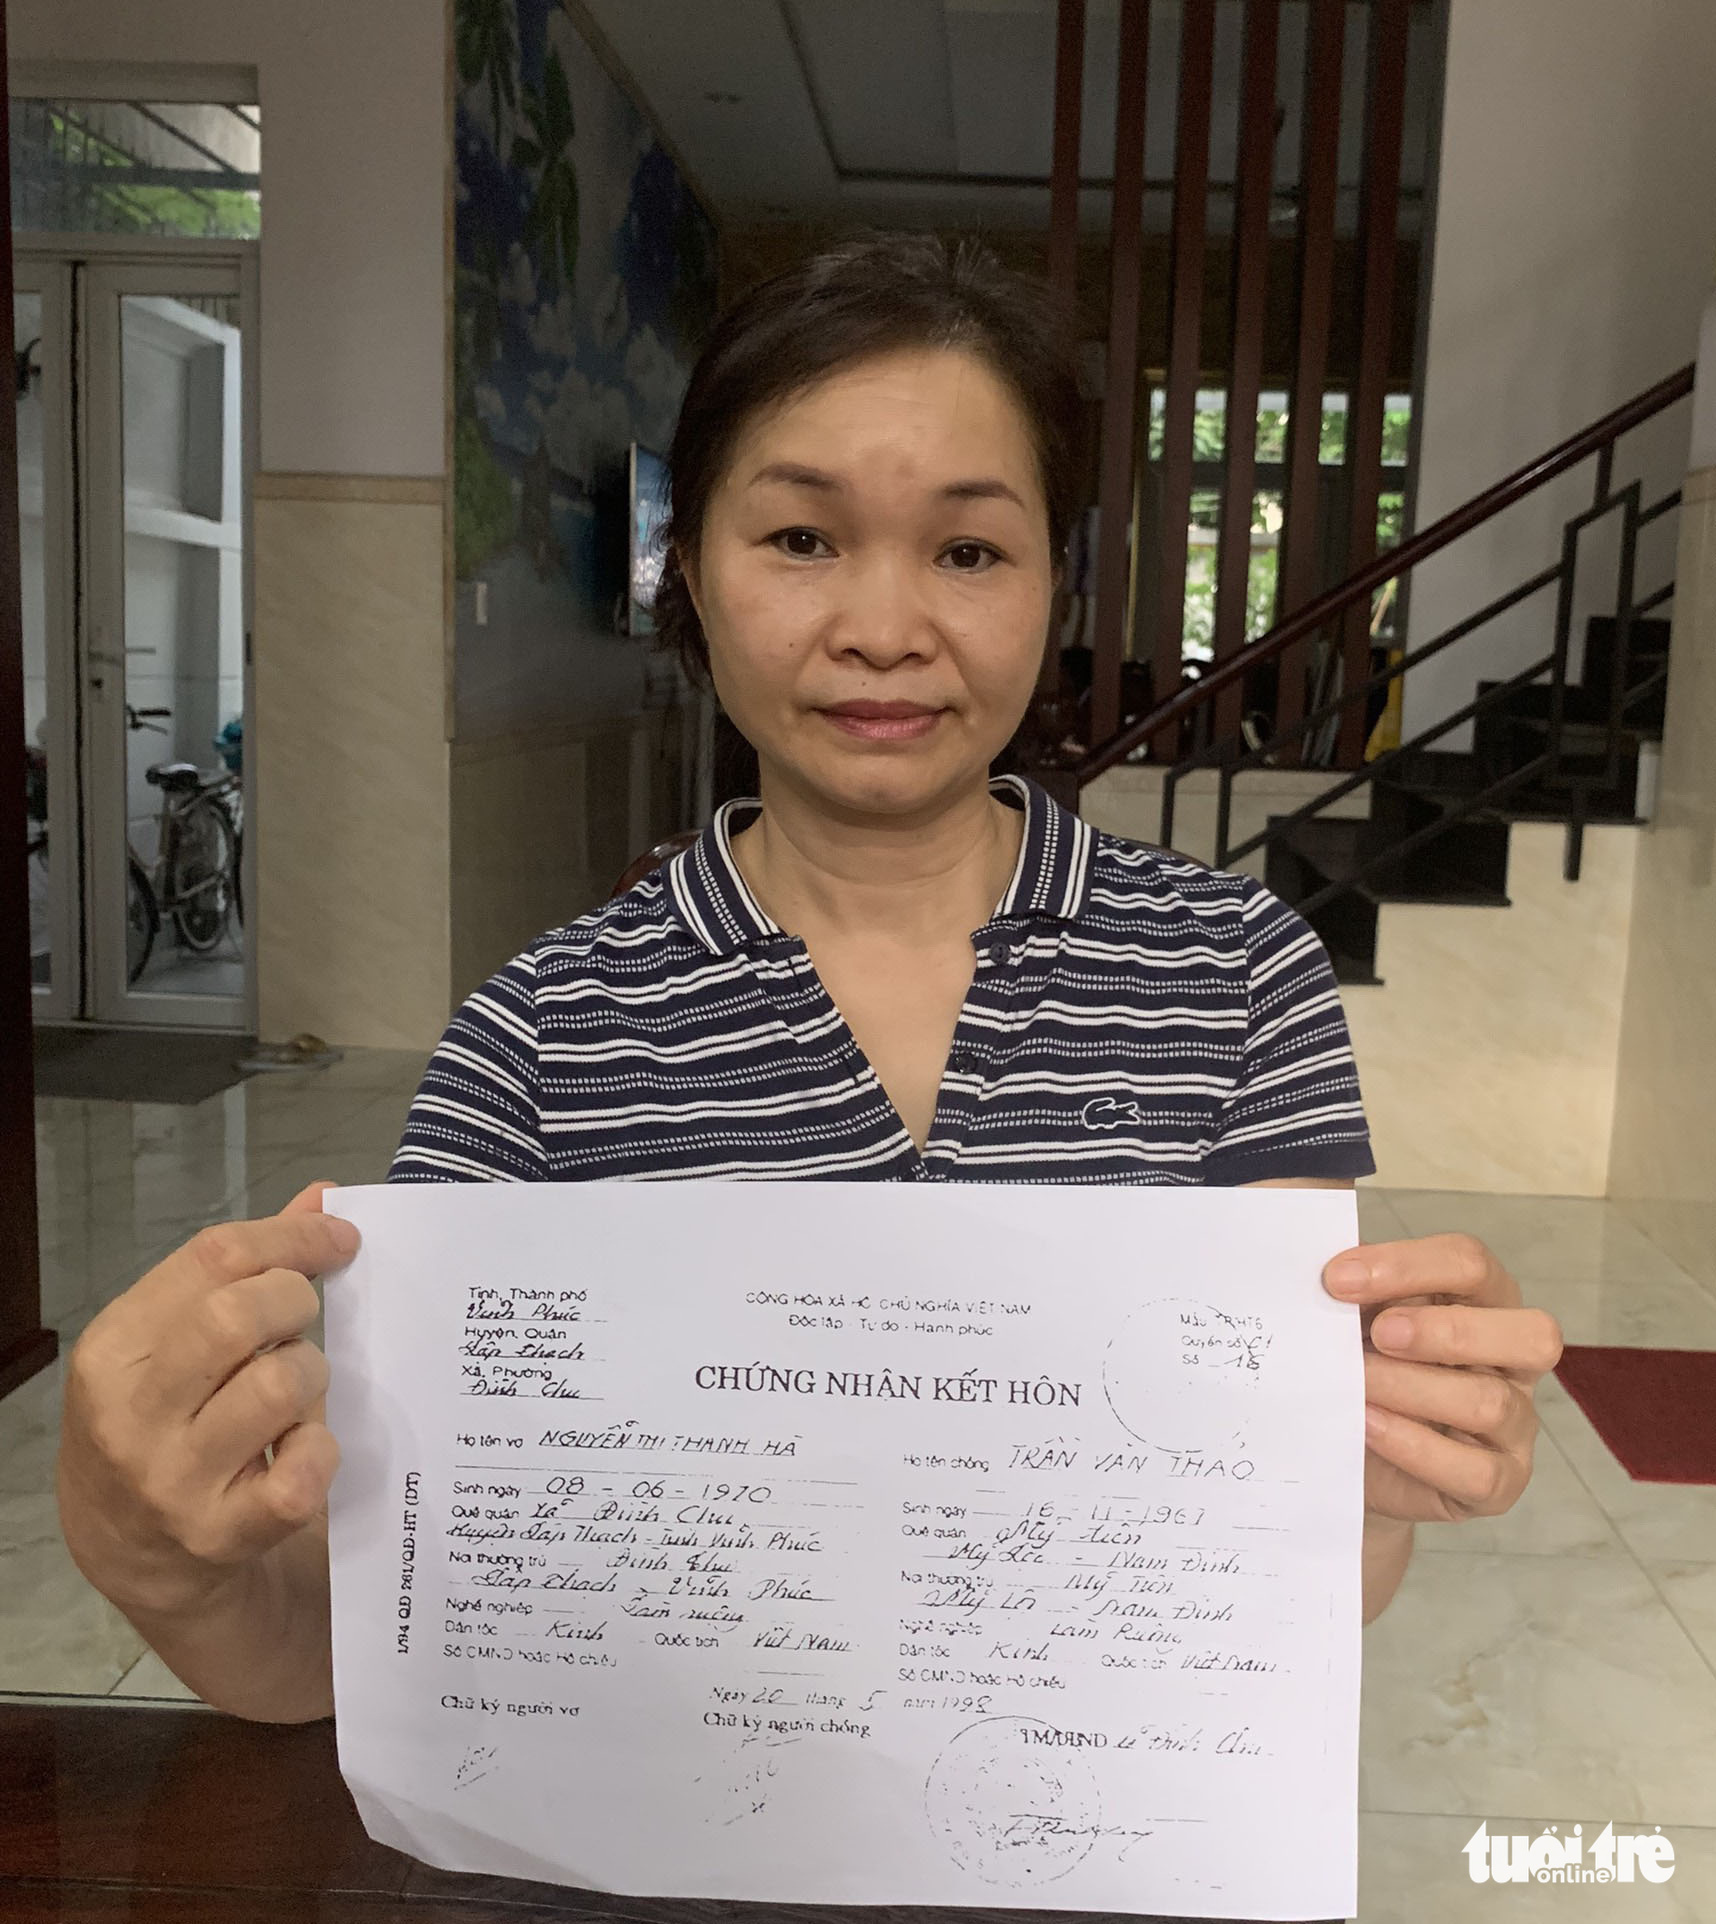 Tỉnh, Thành phố
Vĩnh Phúc
Huyện, Quận
Lập Thạch
Xã, Phường
Đình Chu
CỘNG HÒA XÃ HỘI CHỦ NGHĨA VIỆT NAM
Độc lập - Tự do - Hạnh phúc
Mẫu TP/HT6
Quyển số
Số 16
CHỨNG NHẬN KẾT HÔN
Họ tên vợ NGUYỄN THỊ THANH HÀ
Sinh ngày 08 - 06 - 1970
Quê quán Xã Đình Chu
Huyện Lập Thạch - Tỉnh Vĩnh Phúc
Nơi thường trú Đình Chu
Lập Thạch - Vĩnh Phúc
Nghề nghiệp Làm ruộng
Dân tộc Kinh Quốc tịch Việt Nam
Số CMND hoặc Hộ chiếu
Họ tên chồng TRẦN VĂN THAO
Sinh ngày 16 - 11 - 1967
Quê quán Mỹ Tiến
Mỹ Lộc - Nam Định
Nơi thường trú Mỹ Tiến
Mỹ Lộc - Nam Định
Nghề nghiệp Làm Ruộng
Dân tộc Kinh Quốc tịch Việt Nam
Số CMND hoặc Hộ chiếu
Ngày 20 tháng 5 năm 1998
Chữ ký người vợ
Chữ ký người chồng
TM/UBND Xã Đình Chu
1/94 QĐ 261/QĐ-HT (DT)
tuổi trẻ
online